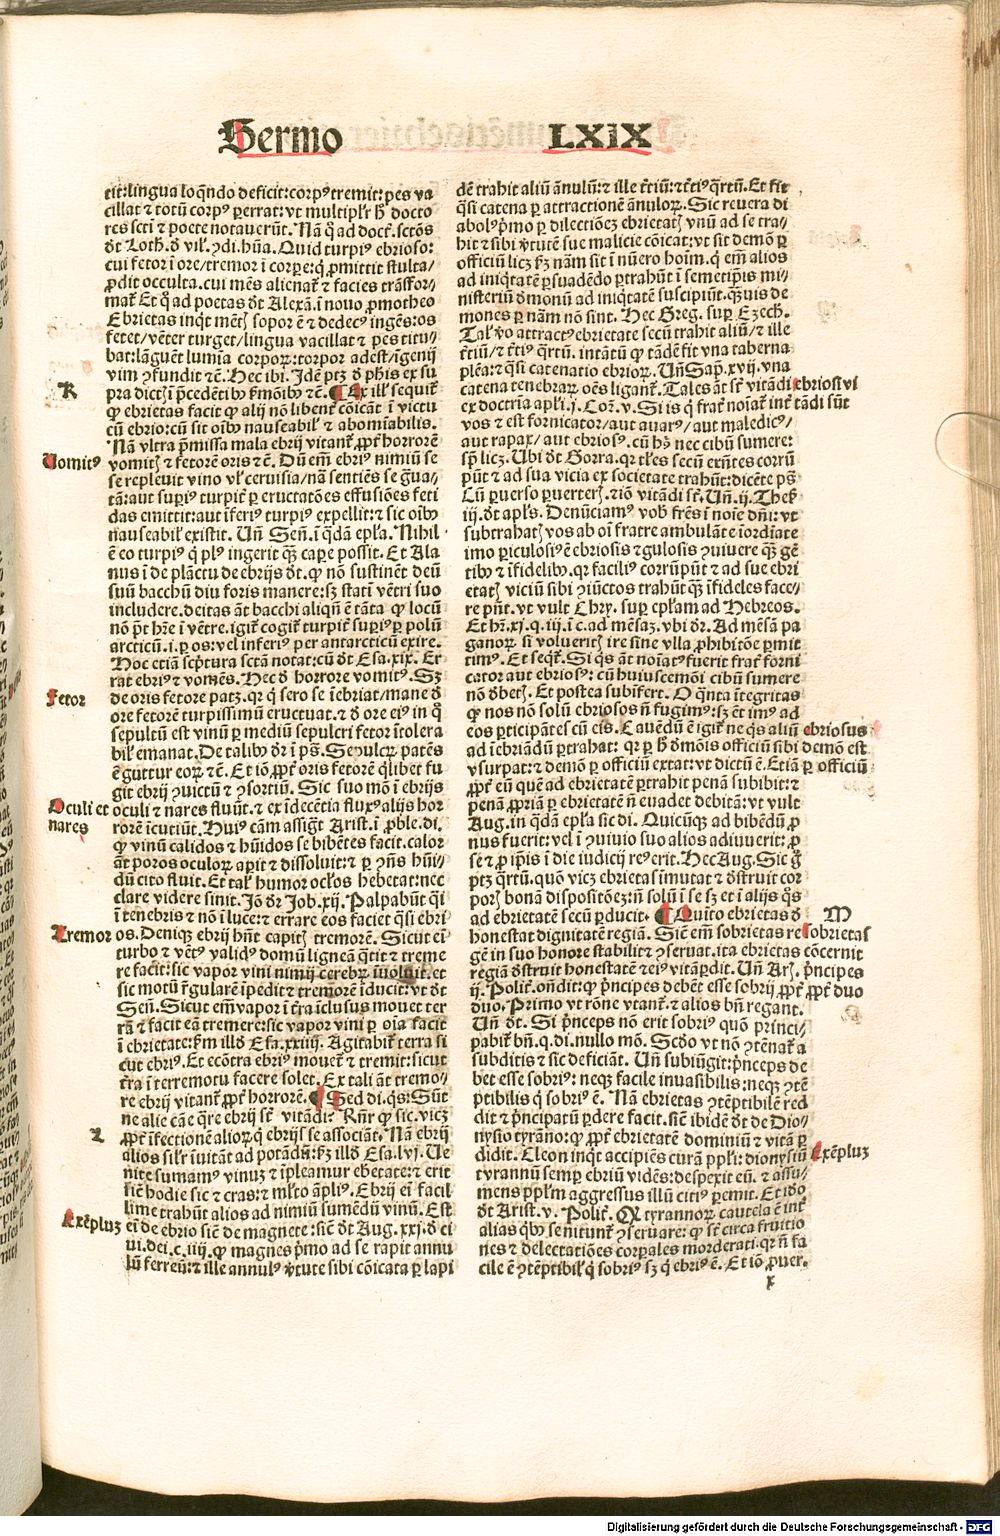 Sermo LXIX
tit:lingua loq̄ndo deficit:corpꝰ tremit:pes va
cillat ⁊ totū corpꝰ ꝑerrat: vt multiplr̄ hͦ docto
res scti ⁊ poete notauerūt. Nā q̄ ad doct. sctōs
dt Loth. d vil. ꝯdi. hūa. Quid turpiꝰ ebrioso:
cui fetor ī ore/tremor ī corꝑe:q̄ ꝓmittit stulta/
ꝓdit occulta. cui mēs alienat̄ ⁊ facies trāsfor-
mat̄ Et q̄ ad poetas dt Alexā. ī nouo ꝓmotheo
Ebrietas inqt mētꝭ sopor ē ⁊ dedecꝰ ingēs: os
fetet/vēter turget/lingua vacillat ⁊ pes titu-
bat: lāguēt lumīa corpoꝝ: torpor adest/īgenij
vim ꝯfundit ⁊c̄. Hec ibi. Idē ptꝫ d phis ex su
K pra dictꝭ ī p̄cedētibꝰ ẜmōibꝰ ⁊c̄. ¶ Ex ill̓ sequit̄
ꝙ ebrietas facit ꝙ alij nō libent̄ cōicāt ī victu
cū ebrio:cū sit oībꝰ nauseabil̓ ⁊ abomīabilis.
Nā vltra p̄missa mala ebrij vitant̄ ꝓpt̄ horrorē
Uomitꝰ vomitꝭ ⁊ fetorē oris ⁊c̄. Dū em̄ ebriꝰ nimiū se
se repleuit vino vl̓ ceruisia/nā sentiēs se g̓ua-
tā:aut suꝑiꝰ turpit̄ ꝑ eructatōes effusiōes feti
das emittit:aut īferiꝰ turpiꝰ expellit:⁊ sic oībꝰ
nauseabil̓ existit. Un̄ Sen̄. ī q̄dā epl̓a. Nihil
ē eo turpiꝰ q̄ plꝰ ingerit q̄ꝫ caꝑe possit. Et Ala
nus ī de plāctu de ebrijs dt. ꝙ nō sustinēt deū
suū bacchū diu foris manere: sꝫ statī vētri suo
includere. deitas āt bacchi aliqn̄ ē tāta ꝙ locū
nō pt̄ hr̄e ī vētre. igit̄ cogit̄ turpit̄ suꝑiꝰ ꝑ polū
arcticū .i. ꝑ os: vel inferiꝰ per antarcticū exire.
Hoc etiā sc̓ptura sctā notat:cū dt Esa. xix. Er
rat ebriꝰ ⁊ vomēs. Hec d horrore vomitꝰ. Sꝫ
Fetor de oris fetore patꝫ. qr q̓ sero se īebriat/mane d
ore fetorē turpissimū eructuat. ⁊ d ore eiꝰ in q̄
sepultū est vinū ꝑ mediū sepulcri fetor ītolera
bil̓ emanat. De talibꝰ dr̄ ī pš. Sepulcꝝ patēs
ē guttur eoꝝ ⁊c̄. Et iō ꝓpt̄ oris fetorē q̄libet fu
git ebrij ꝯuictū ⁊ ꝯsortiū. Sic suo mō ī ebrijs
Oculi et oculi ⁊ nares fluūt. ⁊ ex īdecētia fluxꝰ alijs hor
nares rorē īcutiūt. Huiꝰ cām assigt̄ Arist. ī ꝓble. di.
ꝙ vinū calidos ⁊ hūidos se bibētes facit. calor
āt poros oculoꝝ aꝑit ⁊ dissoluit: ⁊ ꝑ ꝯn̄s hūi-
dū cito fluit. Et tal̓ humor ocl̓os hebetat:nec
clare videre sinit. Iō dr̄ Job. xij. Palpabūt q̄i
ī tenebris ⁊ nō ī luce: ⁊ errare eos faciet q̄si ebri
Tremor os. Deniqꝫ ebrij hn̄t capitꝭ tremorē. Sicut ei
turbo ⁊ vētꝰ validꝰ domū ligneā q̄tit ⁊ treme
re facit:sic vapor vini nimij cerebꝝ īuoluit. et
sic motū r̄gularē īpedit ⁊ tremorē īducit:vt dt
Sen̄. Sicut em̄ vapor ī t̄ra īclusus mouet ter
rā ⁊ facit eā tremere:sic vapor vini ꝑ oīa facit
ī ebrietate: ẜm illd̓ Esa. xxiiij. Agitabit̄ terra si
cut ebriꝰ. Et ecōtra ebriꝰ mouet̄ ⁊ tremit: sicut
t̄ra ī terremotu facere solet. Ex tali āt tremo-
re ebrij vitant̄ ꝓpt̄ horrorē. ¶ Sed di. qs: Sūt
ne alie cāe q̄re ebrij st̄ vitādi? Rn̄r ꝙ sic. vicꝫ
L ꝓpt̄ īfectionē alioꝝ q̄ ebrijs se associāt. Nā ebrij
alios sil̓r īuitāt ad potādū: ẜꝫ illd̓ Esa. lvj. Ue
nite sumamꝰ vinuꝫ ⁊ īpleamur ebetate: ⁊ erit
sic̄ hodie sic ⁊ cras: ⁊ ml̓to āpliꝰ. Ebrij ei̓ facil
lime trahūt alios ad nimiū sumēdū vinū. Est
Exēpluꝫ ei̓ de ebrio sic̄ de magnete: sic̄ dt Aug. xxj. d ci
vi. dei. c. iiij. ꝙ magnes p̄mo ad se rapit annu
lū ferreū: ⁊ ille annulꝰ v̓tute sibi cōicata ꝑ lapi
dē trahit aliū ānulū: ⁊ ille t̓tiū: ⁊ t̓tiꝰ q̄rtū. Et fit
q̄si catena ꝑ attractionē ānuloꝝ. Sic reuera di
abolꝰ p̄mo ꝑ dilectiōeꝫ ebrietatꝭ vnū ad se tra-
hit ⁊ sibi v̓tutē sue malicie cōicat: vt sit demō ꝑ
officiū licꝫ ẜꝫ nām sit ī nūero hoīm. q̓ em̄ alios
ad iniq̄tatē ꝑsuadēdo ꝑtrahūt ī semetip̄is mi-
nisteriū d̓monū ad iniq̄tatē suscipiūt. q̄ꝫuis de
mones ꝑ nām nō sint. Hec Greg. suꝑ Ezech.
Tal̓ v̓o attractꝰ ebrietate secū trahit aliū/ ⁊ ille
t̓tiū/ ⁊ t̓tiꝰ q̄rtū. intātū ꝙ tādē fit vna taberna
plēa: ⁊ q̄si catenatio ebrioꝝ. Un̄ Sap̄. xvij. vna
catena tenebraꝝ oēs ligant̄. Tales āt st̄ vitādi ebriosi vi
ex doctrīa apl̓i. j. Coꝝ. v. Si is q̓ frat̄ noīat̄ int̄ tādi sūt
vos ⁊ est fornicator/aut auarꝰ/aut maledicꝰ/
aut rapax/ aut ebriosꝰ. cū hꝰ nec cibū sumere:
sp̄ licꝫ. Ubi dt Gorra. qr tl̓es secū exn̄tes corrū
pūt ⁊ ad sua vicia ex societate trahūt: dicēte pš
Cū ꝑuerso ꝑuerterꝭ. ⁊iō vitādi st̄. Un̄. ij. Thes̄.
iij. dt apl̓s. Denūciamꝰ vob̓ fr̄es ī noīe dn̄i: vt
subtrahatꝭ vos ab oī fratre ambulāte īordiate
imo ꝑiculosiꝰ ē ebriosis ⁊ gulosis ꝯuiuere q̄ꝫ gē
tibꝰ ⁊ īfidelibꝰ. qr faciliꝰ corrūpūt ⁊ ad sue ebri
etatꝭ viciū sibi ꝯiūctos trahūt q̄ꝫ īfideles face-
re pn̄t. vt vult Chry. suꝑ epl̓am ad Hebreos.
Et hr̄. xj. q. iij. ī c. ad mēsaꝫ. vbi dr̄. Ad mēsā pa
ganoꝝ si volueritꝭ ire sine vlla ꝓhibitōe ꝑmit
timꝰ. Et seqt̄. Si q̓s āt noīatꝰ fuerit frat̄ forni
cator aut ebriosꝰ: cū huiuscemōi cibū sumere
nō d̓betꝭ. Et postea subīfert. O q̄nta ītegritas
ꝙ nos nō solū ebriosos n̄ fugimꝰ: sꝫ ēt imꝰ ad
eos ꝑticipātes cū eis. Cauēdū ē igit̄ ne q̓s aliū ebriosus
ad īebriādū ꝑtrahat: qr ꝑ hͦ d̓mōis officiū sibi demō est
vsurpat: ⁊ demō ꝑ officiū extat: vt dictū ē. Etiā ꝑ officiū
ꝓpt̄ eū quē ad ebrietatē ꝑtrahit penā subibit: ⁊
penā ꝓpriā ꝑ ebrietatē n̄ euadet debitā: vt vult
Aug. in q̄dā epl̓a sic di. Quicūqꝫ ad bibēdū ꝓ
nus fuerit: vel ī ꝯuiuio suo alios adiuuerit: ꝓ
se ⁊ ꝓ ip̄is ī die iudicij reꝰ erit. Hec Aug. Sic g̓
ptꝫ q̄rtū. quō vicꝫ ebrietas īmutat ⁊ d̓struit cor
poꝝ bonā dispositōeꝫ: n̄ solū ī se sꝫ et ī alijs q̄s
ad ebrietatē secū ꝑducit. ¶ Quīto ebrietas d M
honestat dignitatē regiā. Sic̄ em̄ sobrietas re sobrietas
gē in suo honore stabilit ⁊ ꝯseruat. ita ebrietas cōcernit
regiā d̓struit honestatē ⁊ eiꝰ vitā ꝑdit. Un̄ Arꝭ. p̄ncipes
ij. Polit̄. on̄dit: ꝙ p̄ncipes debēt esse sobrij ꝓpt̄ ꝓpt̄ duo
duo. Primo vt rōne vtant̄. ⁊ alios bn̄ regant.
Un̄ dt. Si p̄nceps nō erit sobriꝰ quō princi-
pabit̄ bn̄. q. di. nullo mō. Scdo vt nō ꝯtēnat̄ a
subditis ⁊ sic deficiāt. Un̄ subiūgit: p̄nceps de
bet esse sobriꝰ: neqꝫ facile inuasibilis: neqꝫ ꝯtē
ptibilis q̓ sobriꝰ ē. Nā ebrietas ꝯtēptibilē red
dit ⁊ p̄ncipatū ꝑdere facit. sic̄ ibidē dt de Dio-
nysio tyrāno: ꝙ ꝓpt̄ ebrietatē dominiū ⁊ vitā ꝑ
didit. Cleon inqt accipiēs curā ppl̓i: dionysiū Exēpluꝫ
tyrannū semꝑ ebriū vidēs: despexit eū. ⁊ assu-
mens ppl̓m aggressus illū citiꝰ ꝑemit. Et īdō
dt Arist. v. Polit̄. Qꝫ tyrannoꝝ cautela ē int̄
alias qbꝰ se nitunt̄ ꝯseruare: ꝙ st̄ circa fruitio
nes ⁊ delectatiōes corꝑales morderati. qr n̄ fa
cile ē ꝯtēptibil̓ q̓ sobriꝰ sꝫ q̓ ebriꝰ ē. Et iō ꝓuer.
x
Digitalisierung gefördert durch die Deutsche Forschungsgemeinschaft - DFG